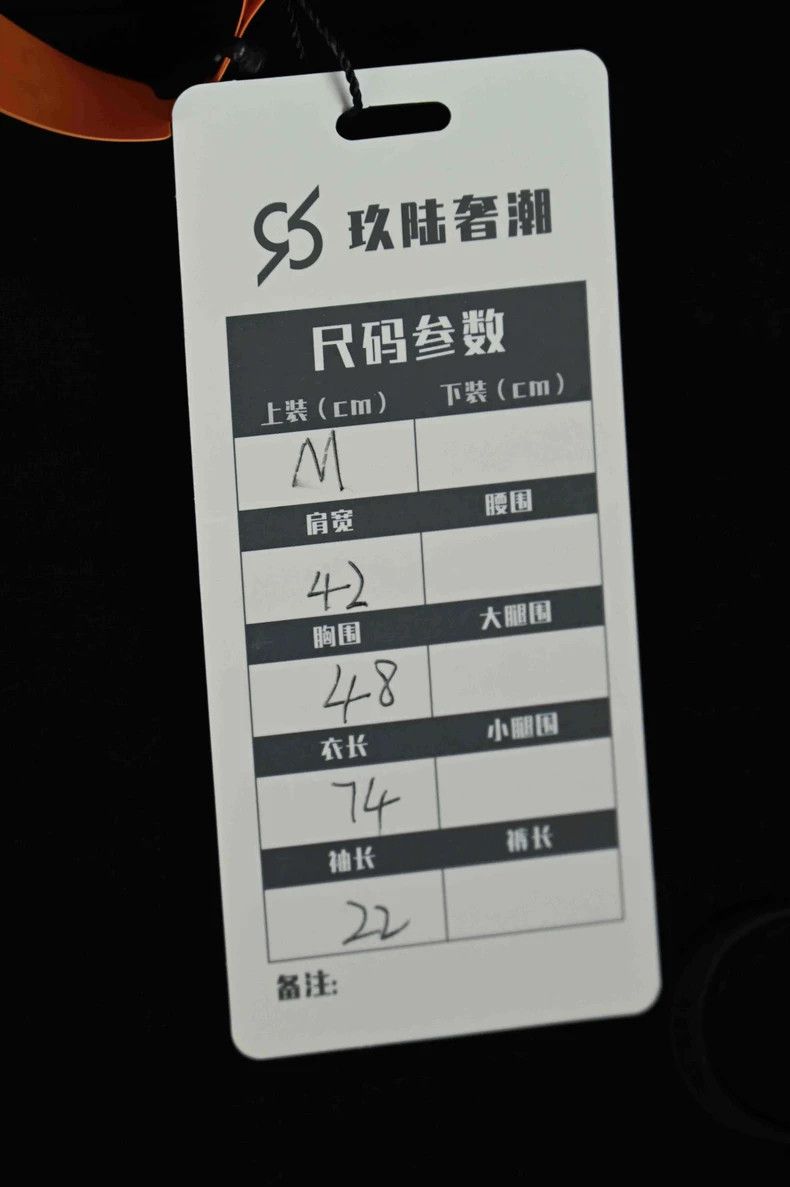 96 玖陆奢潮
尺码参数
上装(cm) 下装(cm)
M
肩宽 腰围
42
胸围 大腿围
48
衣长 小腿围
74
袖长 裤长
22
备注: